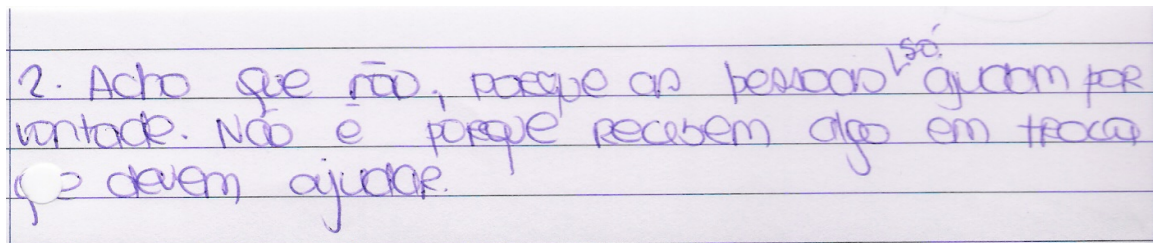 2. Acho que não, porque as pessoas só ajudam por
vontade. Não é porque recebem algo em troca
que devem ajudar.